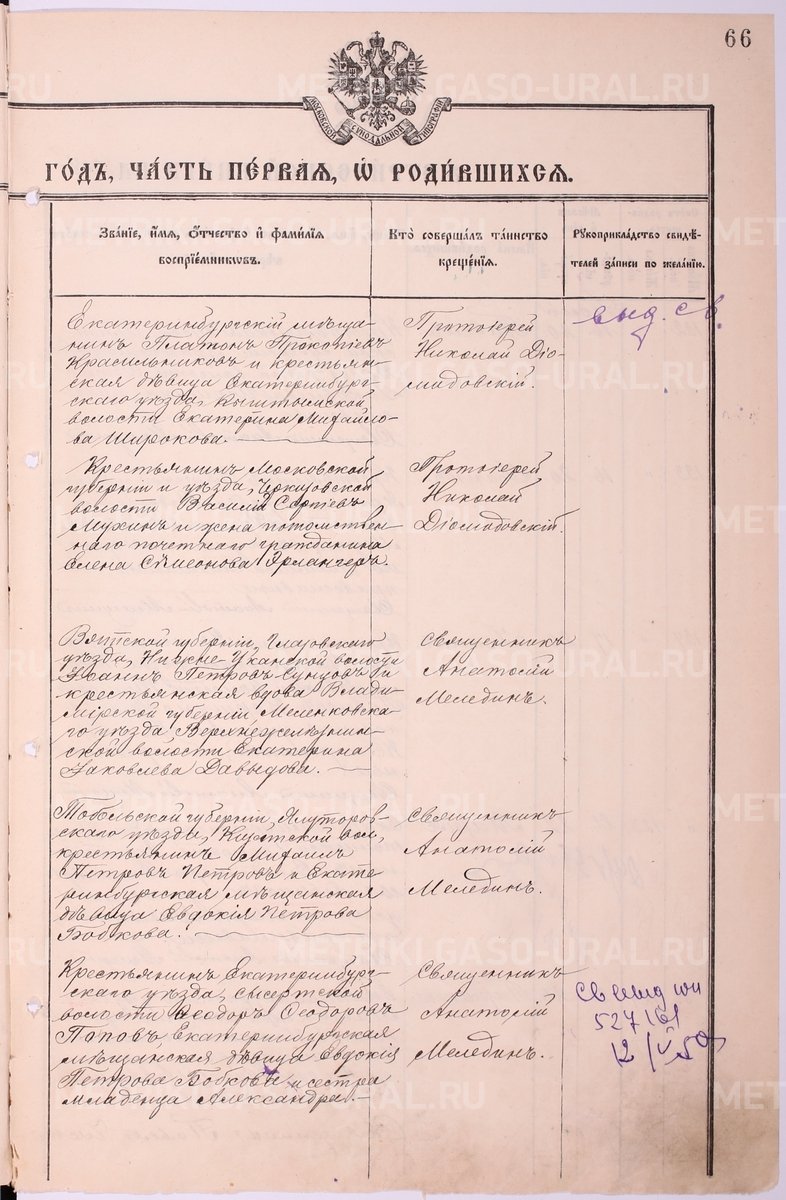 66
МОСКОВСКОЙ СУНОДАЛЬНОЙ ТИПОГРАФІИ
ГО́ДЪ, ЧА́СТЬ ПЕ́РВАЯ, Ѡ҆ РОДИ́ВШИХСЯ.
Зва́нїе, и҆́мя, ѻ҆́тчество и҆ фами́лїя
воспрїе́мникѡвъ.
Кто̀ соверша́лъ та́инство
креще́нїя.
Рꙋкоприкла́дство свидѣ́-
телей за́писи по жела́нїю.
Екатеринбургскій мѣща-
нинъ Платонъ Прокопіевъ
Красильниковъ и крестьян-
ская дѣвица Екатеринбург-
скаго уѣзда, Кыштымской
волости Екатерина Михайло-
ва Широкова.
Протоіерей
Николай Діо-
мидовскій.
выд. св.
Крестьянинъ Московской
губерніи и уѣзда, Черкизовской
волости Василій Сергіевъ
Мухинъ и жена потомствен-
наго почетнаго гражданина
Елена Сѵмеонова Эрлангеръ.
Протоіерей
Николай
Діомидовскій.
Вятской губерніи, Глазовскаго
уѣзда, Нижне-Уканской волости
Іоаннъ Петровъ Сунцовъ и
крестьянская вдова Влади-
мірской губерніи Меленковска-
го уѣзда, Верхне
ской волости Екатерина
Іаковлева Давыдова.
Священникъ
Анатолій
Мелединъ.
Тобольской губерніи, Ялуторов-
скаго уѣзда, вол,
крестьянинъ Михаилъ
Петровъ Петровъ и Екате
ринбургская мѣщанская
дѣвица Евдокія Петрова
Бобкова.
Священникъ
Анатолій
Мелединъ.
Крестьянинъ Екатеринбург-
скаго уѣзда, Сысертской
волости Ѳеодоръ Ѳеодоровъ
Поповъ, Екатеринбургская
мѣщанская дѣвица Евдокія
Петрова Бобкова и сестра
младенца Александра.
Священникъ
Анатолій
Мелединъ.
527161
12/V 50
METRIKI.GASO-URAL.RU